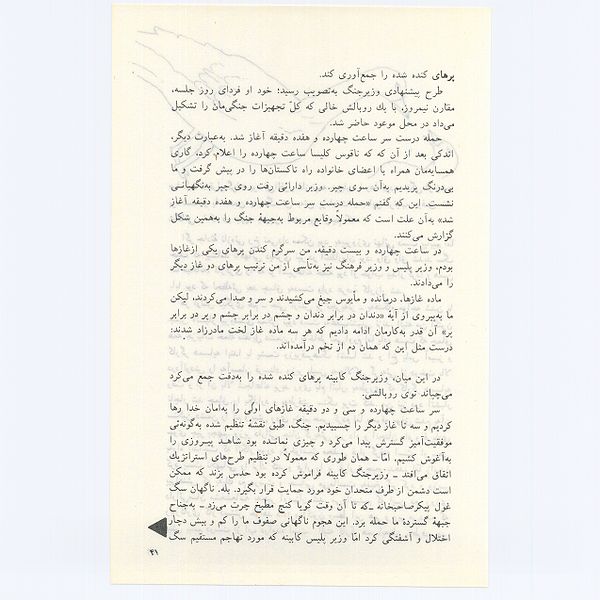 پرهای کنده شده را جمع‌آوری کند.
طرح پیشنهادی وزیرجنگ به‌تصویب رسید؛ خود او فردای روز جلسه،
مقارن نیمروز، با یك روبالش خالی که کلّ تجهیزات جنگی‌مان را تشکیل
می‌داد در محل موعود حاضر شد.
حمله درست سر ساعت چهارده و هفده دقیقه آغاز شد. به‌عبارت دیگر،
اندکی بعد از آن که که ناقوس کلیسا ساعت چهارده را اعلام کرد، گاری
همسایه‌مان همراه با اعضای خانواده راه تاکستان‌ها را در پیش گرفت و ما
بی‌درنگ پریدیم به‌آن سوی چپر. وزیر دارائی رفت روی چپر به‌نگهبانی
نشست. این که گفتم «حمله درست سر ساعت چهارده و هفده دقیقه آغاز
شد» به‌آن علت است که معمولاً وقایع مربوط به‌جبههٔ جنگ را به‌همین شکل
گزارش می‌کنند.
در ساعت چهارده و بیست دقیقه، من سرگرم کندن پرهای یکی ازغازها
بودم، وزیر پلیس و وزیر فرهنگ نیز به‌تأسی از من ترتیب پرهای دو غاز دیگر
را می‌دادند.
ماده غازها، درمانده و مأیوس جیغ می‌کشیدند و سر و صدا می‌کردند، لیکن
ما به‌پیروی از آیهٔ «دندان در برابر دندان و چشم در برابر چشم و پر در برابر
پر» آن قدر به‌کارمان ادامه دادیم که هر سه ماده غاز لخت مادرزاد شدند؛
درست مثل این که همان دم از تخم درآمده‌اند.
در این میان، وزیرجنگ کابینه پرهای کنده شده را به‌دقت جمع می‌کرد
می‌چپاند توی روبالشی.
سر ساعت چهارده و سی و دو دقیقه غازهای اولی را به‌امان خدا رها
کردیم و سه تا غاز دیگر را چسبیدیم. جنگ، طبق نقشهٔ تنظیم شده به‌گونه‌ئی
موفقیت‌آمیز گسترش پیدا می‌کرد و چیزی نمانده بود شاهد پیروزی را
به‌آغوش کشیم، امّا ـ همان طوری که معمولاً در تنظیم طرح‌های استراتژیك
اتفاق می‌افتد ـ وزیرجنگ کابینه فراموش کرده بود حدس بزند که ممکن
است دشمن از طرف متحدان خود مورد حمایت قرار بگیرد. بله، ناگهان سگ
غول پیکرصاحبخانه ـ که تا آن وقت گویا کنج مطبخ چرت می‌زد ـ به‌جناح
جبههٔ گستردهٔ ما حمله برد. این هجوم ناگهانی صفوف ما را کم و بیش دچار
اختلال و آشفتگی کرد امّا وزیر پلیس کابینه که مورد تهاجم مستقیم سگ
۴۱